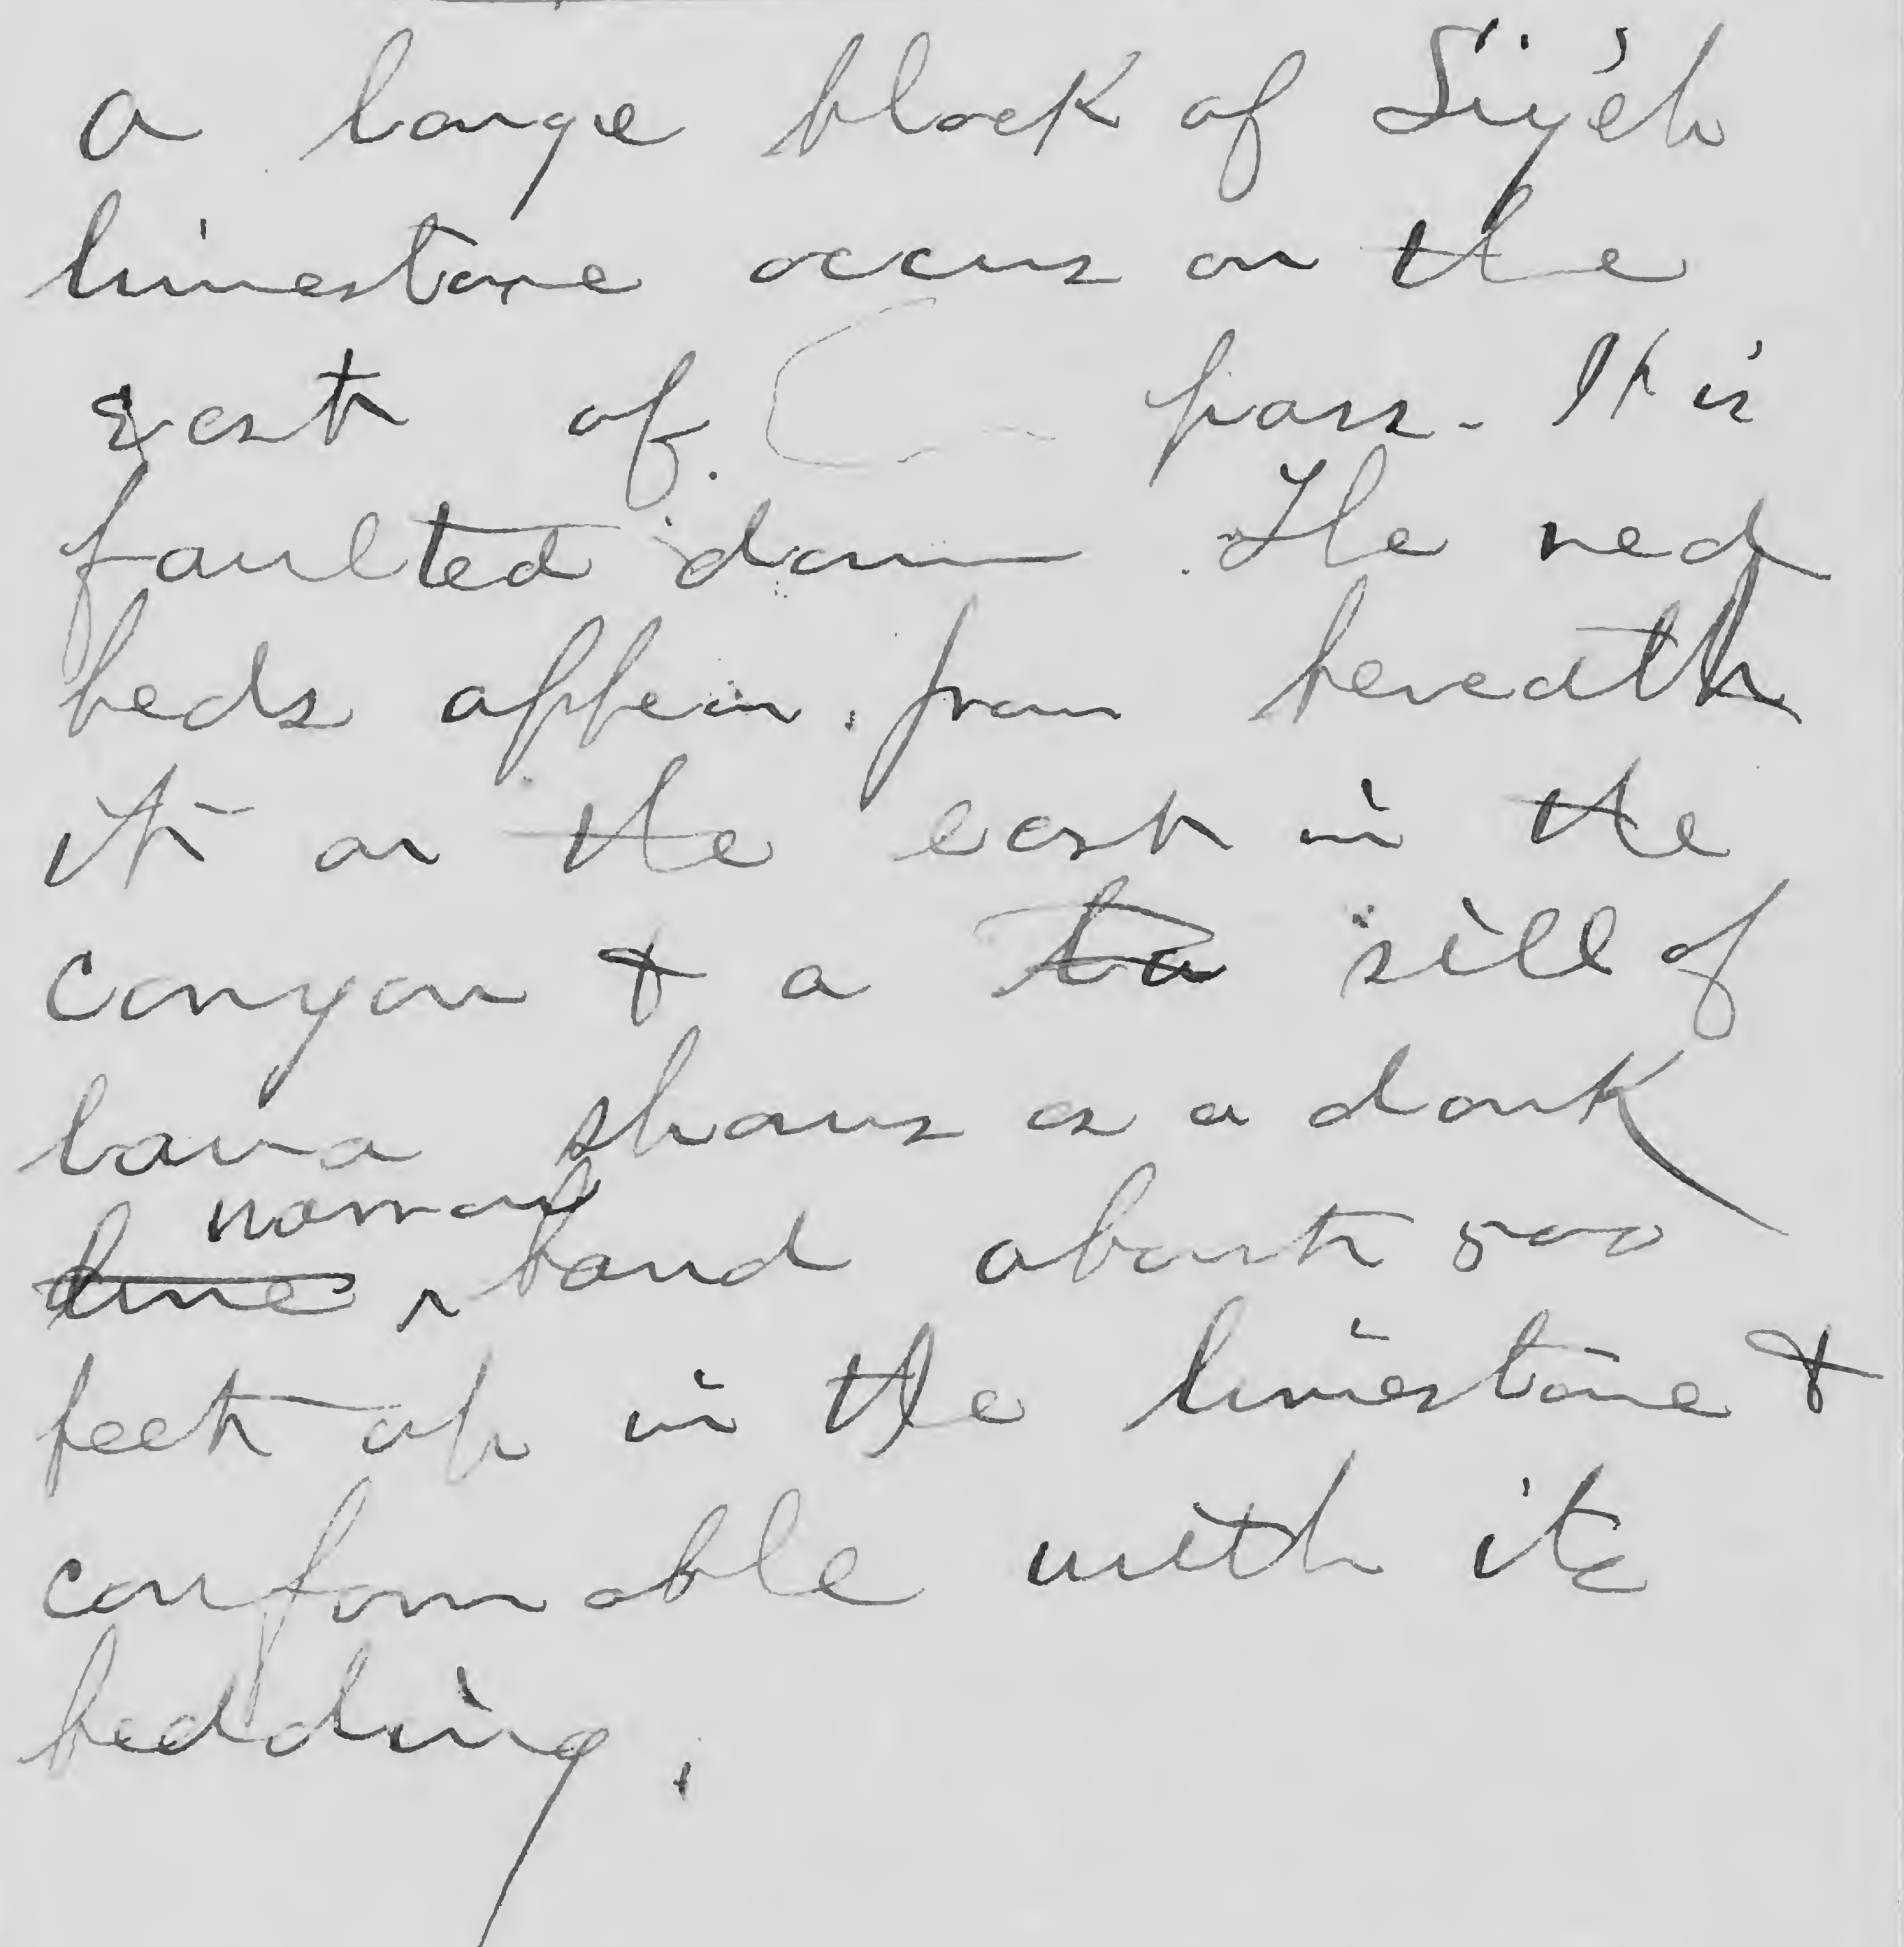 a large block of Siyeh
limestone occurs on the
East of pass. It is
faulted down The red
beds appear from beneath
it on the east in the
canyon & a ta sill of
lava shows as a dark
narrow
line ^ band about 500
feet up in the limestone &
conformable with its
bedding.